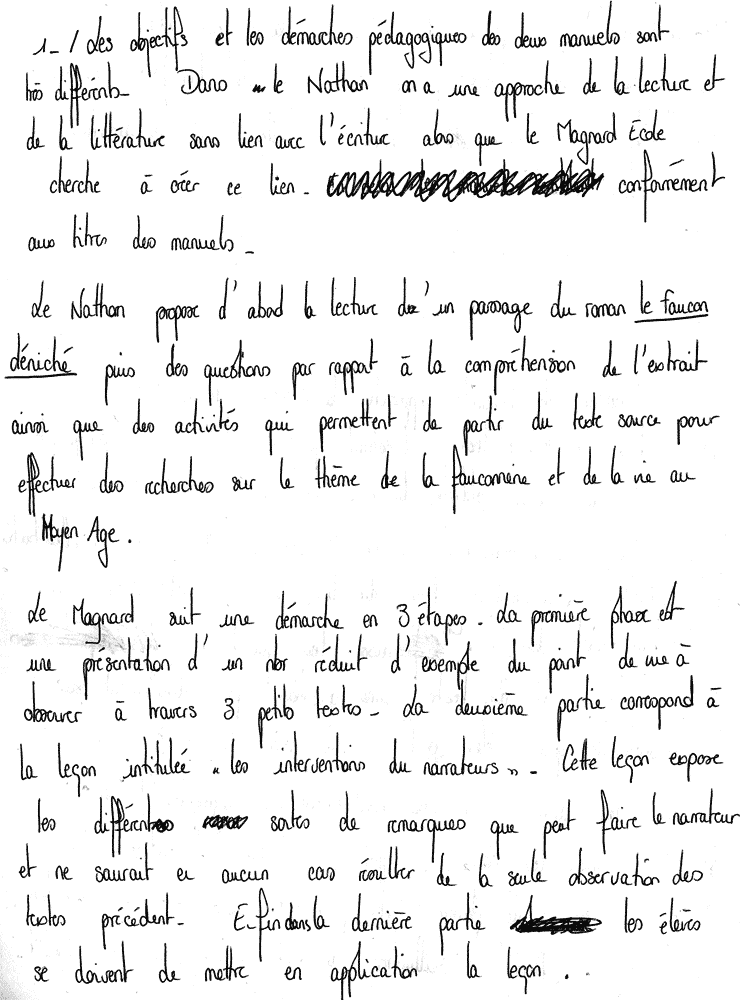 1-/ Les objectifs et les démarches pédagogiques des deux manuels sont
très différents. Dans le Nathan on a une approche de la lecture et
de la littérature sans lien avec l'écriture alors que le Magnard École
cherche à créer ce lien. conformément
aux titres des manuels.
Le Nathan propose d'abord la lecture d'un passage du roman le faucon
déniché puis des questions par rapport à la compréhension de l'extrait
ainsi que des activités qui permettent de partir du texte source pour
effectuer des recherches sur le thème de la fauconnerie et de la vie au
Moyen Age.
Le Magnard suit une démarche en 3 étapes. La première phase est
une présentation d'un nbr réduit d'exemple du point de vue à
observer à travers 3 petits textes. La deuxième partie correspond à
la leçon intitulée "les interventions du narrateurs". Cette leçon expose
les différentes sortes de remarques que peut faire le narrateur
et ne saurait en aucun cas résulter de la seule observation des
textes précédent. Enfin dans la dernière partie les élèves
se doivent de mettre en application la leçon . .